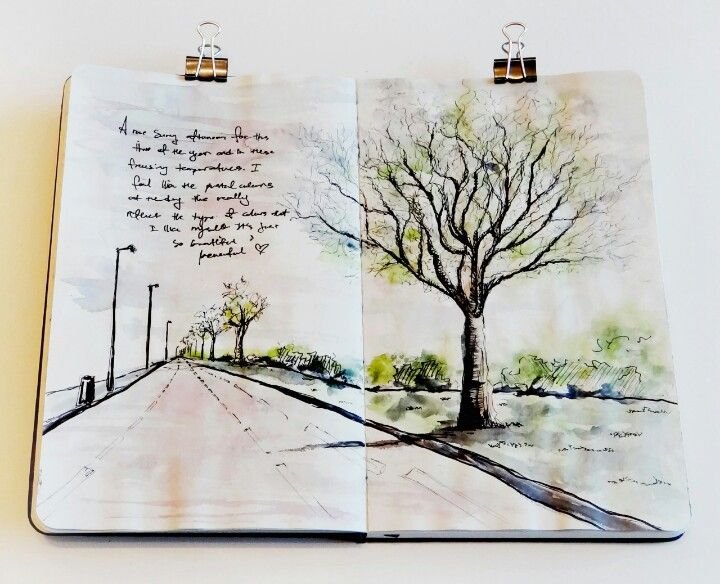 A rare sunny afternoon for this
time of the year and in these
freezing temperatures. I
feel like the pastel colours
of the day really
reflect the type of colors that
I like myself. It's just
so beautiful &
peaceful ♡